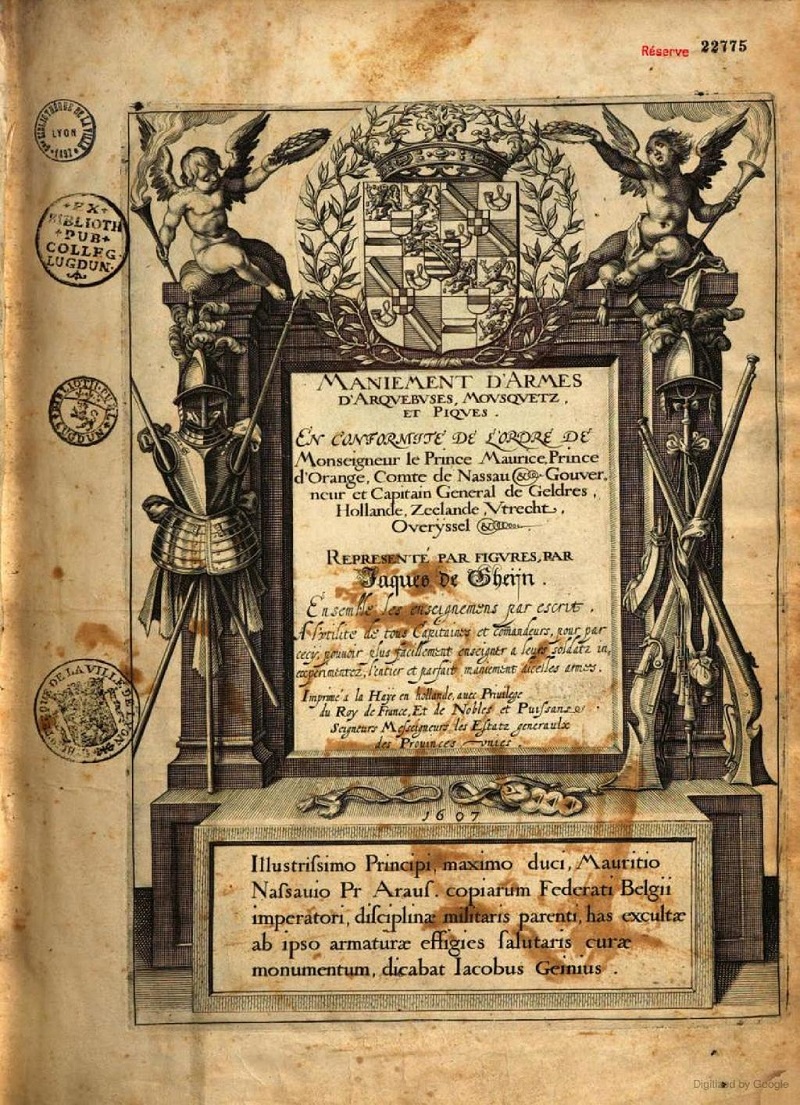 Réserve 22775
BIBLIOTHEQUE DE LA VILLE
LYON
EX
BIBLIOTH
PUB
COLLEG
LUGDUN.
MANIEMENT D'ARMES
D'ARQVEBVSES, MOVSQVETZ,
ET PIQVES.
EN CONFORMITÉ DE L'ORDRE DE
Monseigneur le Prince Maurice, Prince
d'Orange, Comte de Nassau &c Gouver,
neur et Capitain General de Geldres,
Hollande, Zeelande, Vtrecht,
Overyssel &c
REPRESENTÉ PAR FIGVRES, PAR
Jaques de Gheijn.
Ensemble les enseignemens par escrit,
A l'vtilite de tous Capitaines et comandeurs, pour par
cecy, pouvoir plus facillement enseigner a leurs soldatz in,
experimentez, l'entier et parfait maniement dicelles armes.
Imprimé a la Haye en hollande, avec Privilege
du Roy de France, Et de Nobles et Puissans
Seigneurs Messeigneurs les Estatz generaulx
des Provinces vnies.
1607
Illustrissimo Principi, maximo duci, Mauritio
Nassauio Pr Araus. copiarum Federati Belgii
imperatori, disciplinæ militaris parenti, has excultæ
ab ipso armaturæ effigies salutaris curæ
monumentum, dicabat Iacobus Geinius.
BIBLIOTHEQUE DE LA VILLE DE LYON
Digitized by Google